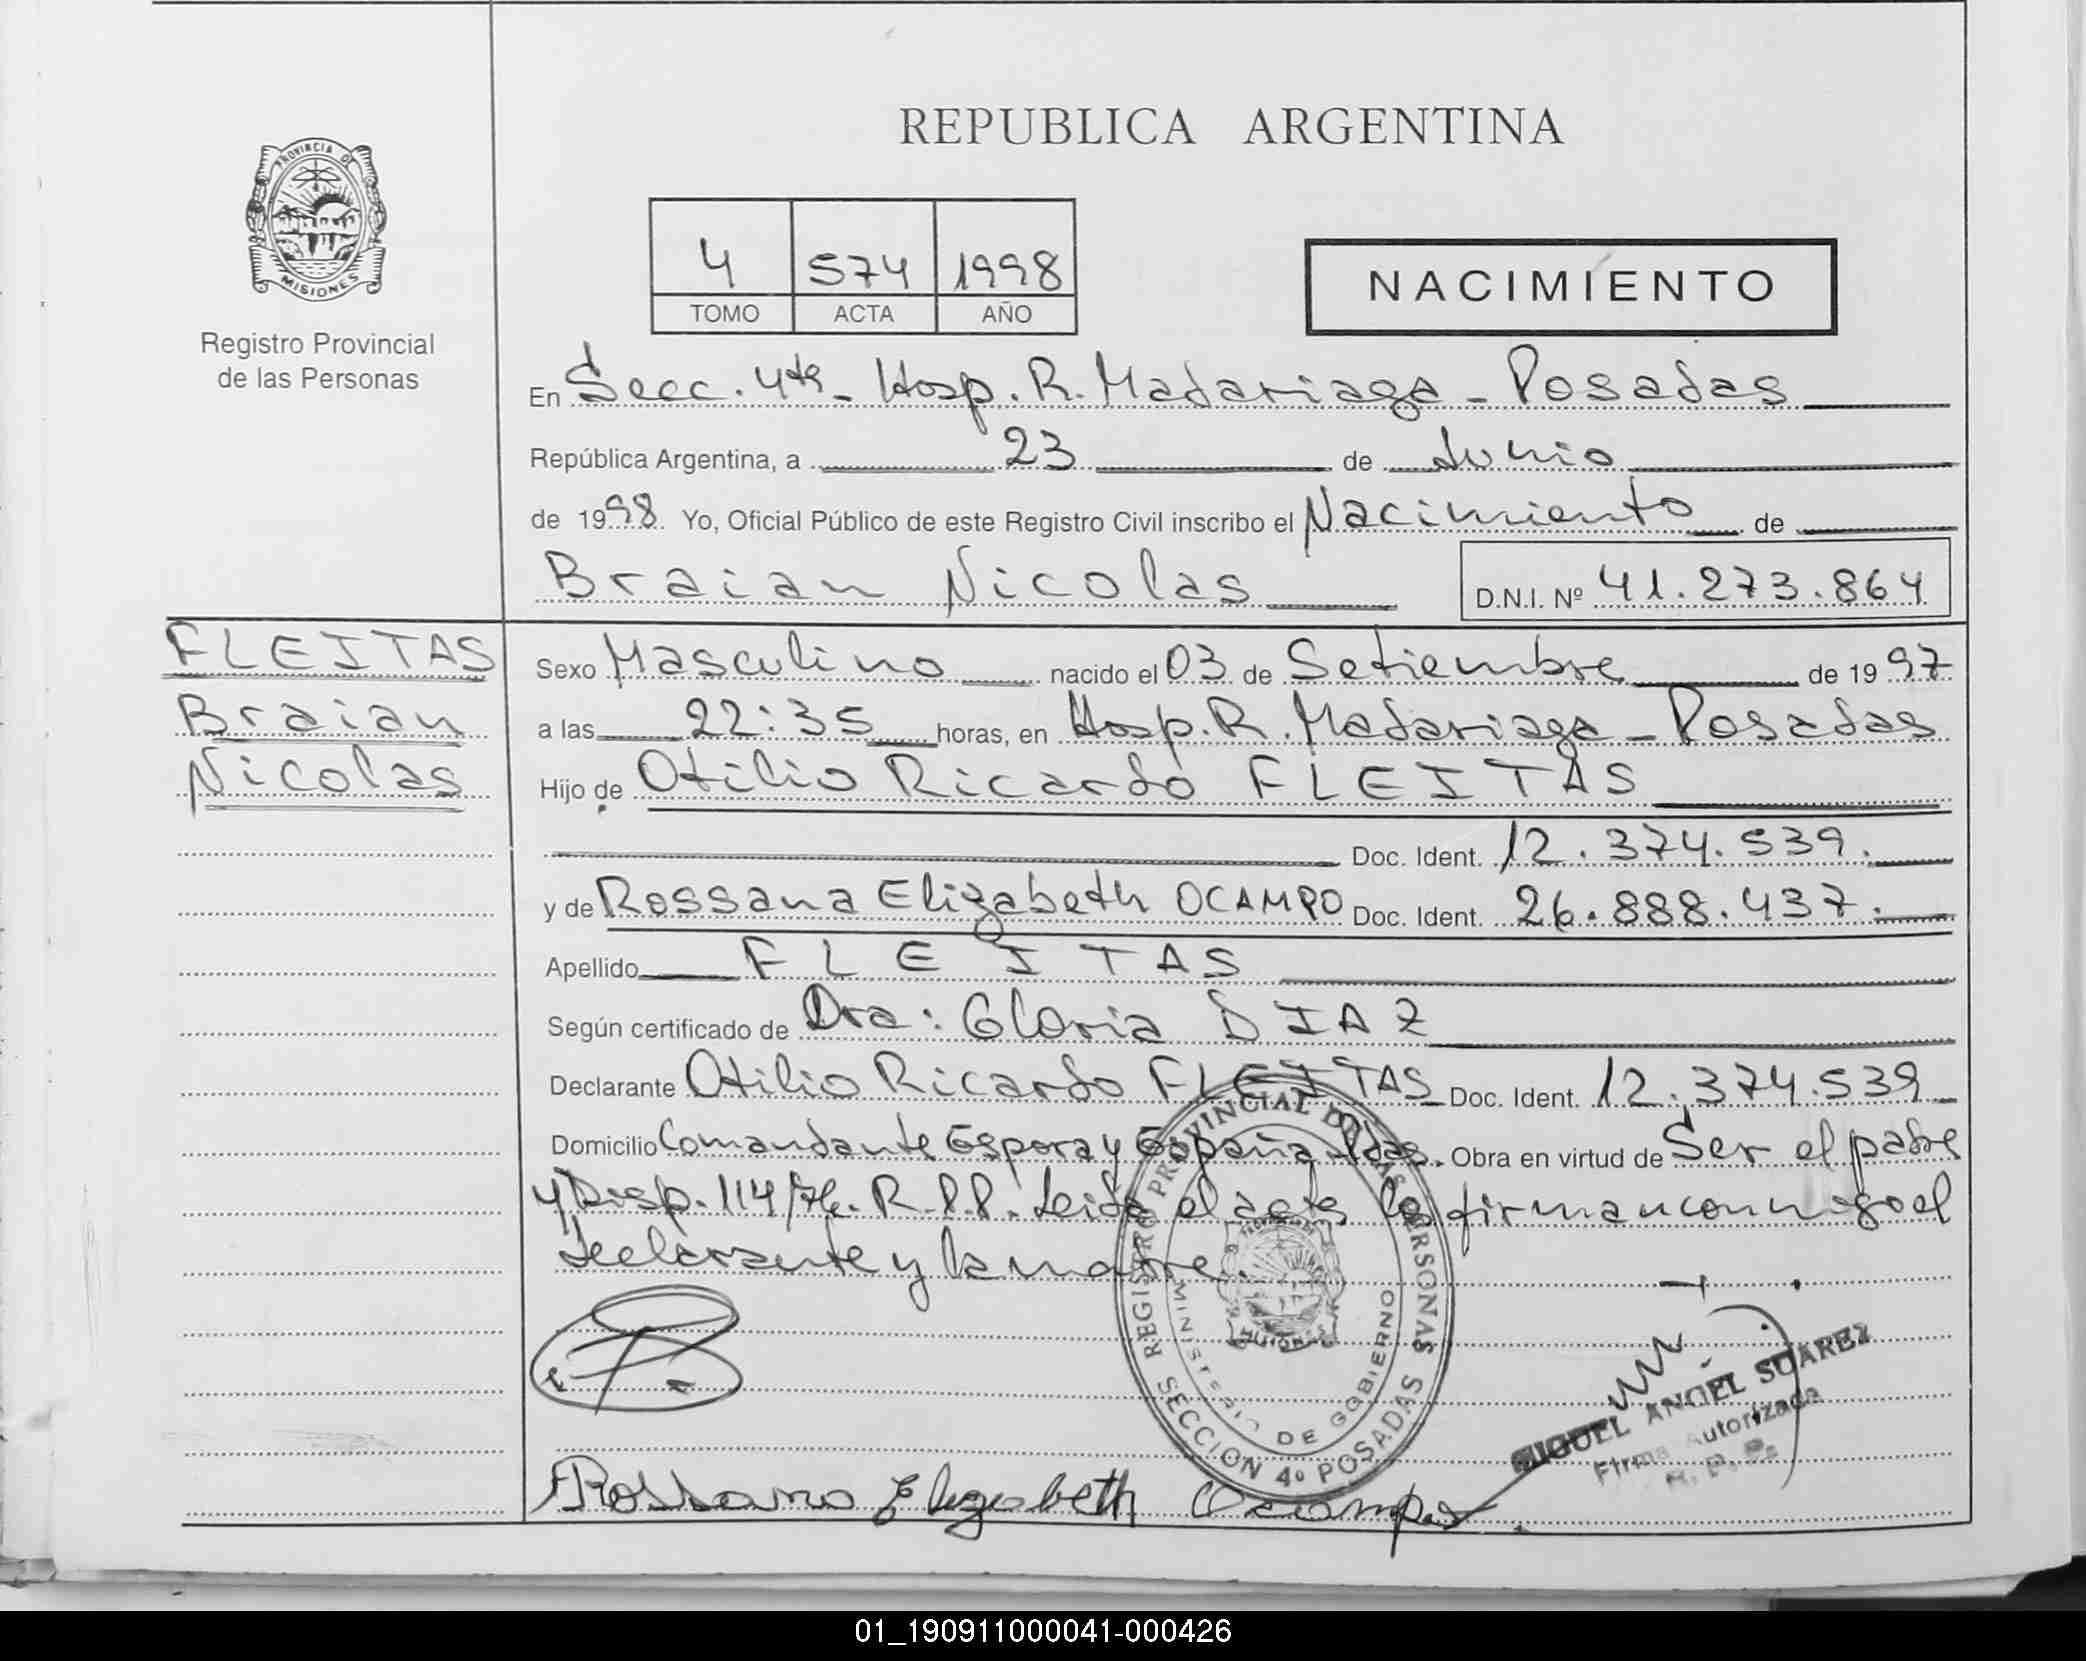 REPUBLICA ARGENTINA
PROVINCIA DE
MISIONES
Registro Provincial
de las Personas
4 574 1998
TOMO ACTA AÑO
NACIMIENTO
En Secc. 4ta - Hosp. R. Madariaga - Posadas
República Argentina, a 23 de Junio
de 1998 Yo, Oficial Público de este Registro Civil inscribo el Nacimiento de
Braian Nicolas D.N.I. Nº 41.273.864
FLEITAS
Braian
Nicolas
Sexo Masculino nacido el 03 de Setiembre de 1997
a las 22:35 horas, en Hosp. R. Madariaga - Posadas
Hijo de Otilio Ricardo FLEITAS
Doc. Ident. 12.374.539.
y de Rossana Elizabeth OCAMPO Doc. Ident. 26.888.437.
Apellido FLEITAS
Según certificado de Dra: Gloria DIAZ
Declarante Otilio Ricardo FLEITAS Doc. Ident. 12.374.539
Domicilio Comandante Espora y España Pdas. Obra en virtud de Ser el padre
y Disp. 114/76. R.P.P. Leida el acta la firman conmigo el
declarante y la madre.
REGISTRO PROVINCIAL DE LAS PERSONAS
MINISTERIO DE GOBIERNO
MISIONES
SECCION 4º POSADAS
MIGUEL ANGEL SUAREZ
Firma Autorizada
R. P. P.
Rossana Elizabeth Ocampo
01_190911000041-000426